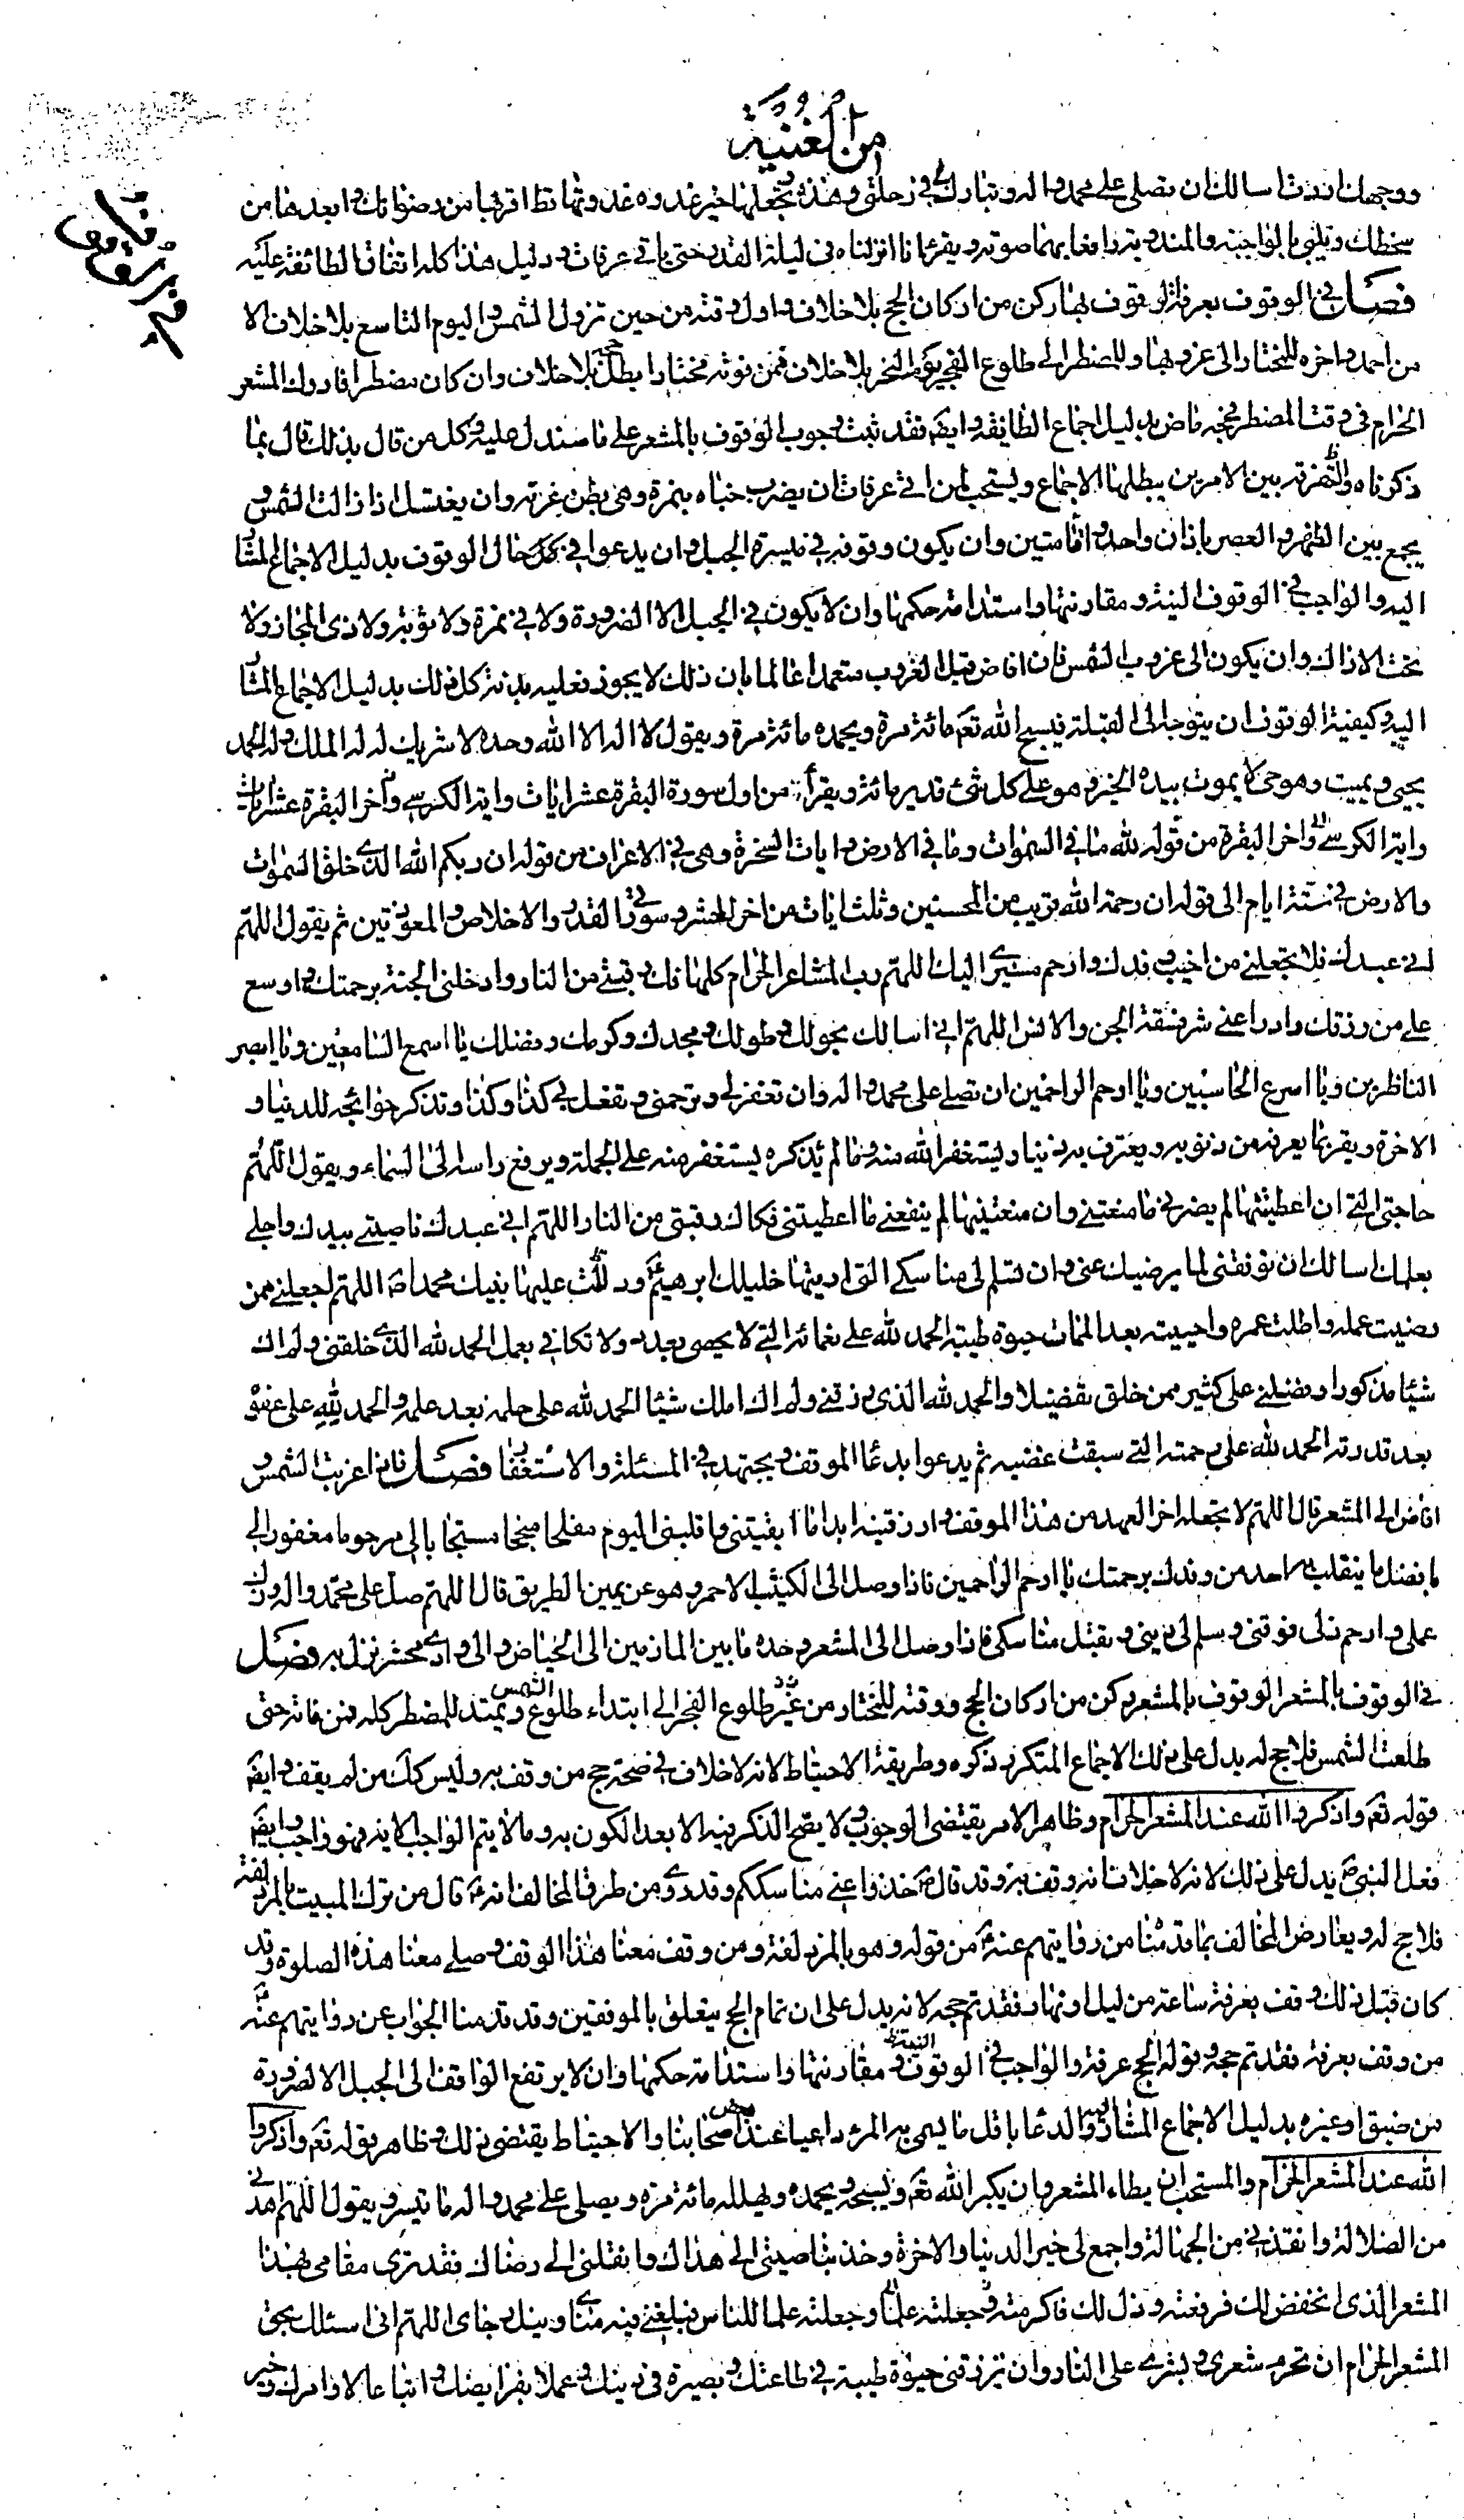 من الغنية
ووجهك اردت اسالك ان تصلي على محمد واله وتبارك لي في رحلتي وهذه تجعلها خير غدوة غدوتها قط اقربها من رضوانك وابعدها من
سخطك ويلبي بالواجبة والمندوبة رافعا بهما صوته ويقرء انا انزلناه في ليلة القدر حتى ياتي عرفات ودليل هذا كله اتفاق الطائفة عليه
فصل في الوقوف بعرفة الوقوف بها ركن من اركان الحج بلا خلاف واول وقته من حين تزول الشمس اليوم التاسع بلا خلاف الا
من احمد واخره للمختار الى غروبها وللمضطر الى طلوع الفجر يوم النحر بلا خلاف فمن فوته مختارا بطل حجه بلا خلاف وان كان مضطرا فادرك المشعر
الحرام في وقت المضطر فحجه ماض بدليل اجماع الطايفة وايضا فقد ثبت وجوب الوقوف بالمشعر على ما سندل عليه وكل من قال بذلك قال بما
ذكرناه والتفرقة بين الامرين يبطلها الاجماع ويستحب لمن اتى عرفات ان يضرب خباه بنمرة وهي بطن عرنة وان يغتسل اذا زالت الشمس و
يجمع بين الظهر والعصر باذان واحد واقامتين وان يكون وقوفه في ميسرة الجبل وان يدعوا في كل حال الوقوف بدليل الاجماع المشار
اليه والواجب في الوقوف النية ومقارنتها واستدامة حكمها وان لا يكون في الجبل الا لضرورة ولا في نمرة ولا ثوية ولا ذى المجاز ولا
تحت الاراك وان يكون الى غروب الشمس فان افاض قبل الغروب متعمدا عالما بان ذلك لا يجوز فعليه بدنة كل ذلك بدليل الاجماع المشار
اليه وكيفية الوقوف ان يتوجه الى القبلة فيسبح الله تع مائة مرة ويحمده مائة مرة ويقول لا اله الا الله وحده لا شريك له له الملك وله الحمد
يحيى ويميت وهو حي لا يموت بيده الخير وهو على كل شئ قدير مائة ويقرأ من اول سورة البقرة عشر ايات واية الكرسي وآخر البقرة عشر ايات
واية الكرسي واخر البقرة من قوله لله ما في السموات وما في الارض وايات السخرة وهي في الاعراف من قوله ان ربكم الله الذي خلق السموات
والارض في ستة ايام الى قوله ان رحمة الله قريب من المحسنين وثلث ايات من اخر الحشر وسورة القدر والاخلاص والمعوذتين ثم يقول اللهم
اني عبدك فلا تجعلني من اخيب وفدك وارحم مسيري اليك اللهم رب المشاعر الحرام كلها فك رقبتي من النار وادخلني الجنة برحمتك واوسع
علي من رزقك وادرا عني شر فسقة الجن والانس اللهم اني اسالك بحولك وطولك ومجدك وكرمك وفضلك يا اسمع السامعين ويا ابصر
الناظرين ويا اسرع الحاسبين ويا ارحم الراحمين ان تصلي على محمد واله وان تغفر لي وترحمني وتفعل بي كذا وكذا وتذكر حوائجه للدنيا و
الاخرة ويقر بما يعرفه من ذنوبه ويعترف به ذنبا ويستغفر الله منه وما لم يذكره يستغفر منه على الجملة ويرفع راسه الى السماء ويقول اللهم
حاجتي التي ان اعطيتنيها لم يضرني ما منعتني وان منعتنيها لم ينفعني ما اعطيتني فكاك رقبتي من النار اللهم اني عبدك ناصيتي بيدك واجلي
بعلمك اسالك ان توفقني لما يرضيك عني وان تسلم لي مناسكي التي اريتها خليلك ابرهيم ودللت عليها نبيك محمدا ص اللهم اجعلني ممن
رضيت عمله واطلت عمره واحييته بعد الممات حيوة طيبة الحمد لله على نعمائه التي لا يحصى بعدد ولا تكافي بعمل الحمد لله الذي خلقني ولم اك
شيئا مذكورا وفضلني على كثير ممن خلق تفضيلا والحمد لله الذي رزقني ولم اك املك شيئا الحمد لله على حلمه بعد علمه والحمد لله على عفوه
بعد قدرته الحمد لله على رحمته التي سبقت غضبه ثم يدعوا بدعا الموقف ويجتهد في المسئلة والاستغفار فصل فاذا غربت الشمس و
افاض الى المشعر قال اللهم لا تجعله اخر العهد من هذا الموقف وارزقنيه ابدا ما ابقيتني واقلبني اليوم مفلحا منجحا مستجابا لي مرحوما مغفورا لي
بافضل ما ينقلب به احد من وفدك برحمتك يا ارحم الراحمين فاذا وصل الى الكثيب الاحمر وهو عن يمين الطريق قال اللهم صل على محمد واله وزك
عملي وارحم ذلى فوتني وسلم لي ديني وتقبل مناسكي فاذا وصل الى المشعر وحده ما بين المازمين الى الحياض والى وادي محسر نزل به فصل
في الوقوف بالمشعر الوقوف بالمشعر ركن من اركان الحج ووقته للمختار من عند طلوع الفجر الى ابتداء طلوع الشمس ويمتد للمضطر كله فمن فاته حتى
طلعت الشمس فلا حج له يدل على ذلك الاجماع المتكرر ذكره وطريقة الاحتياط لانه لا خلاف في صحة حج من وقف به وليس كك من لم يقف وايضا
قوله تع واذكروا الله عند المشعر الحرام وظاهر الامر يقتضى الوجوب ولا يصح الذكر فيه الا بعد الكون به وما لا يتم الواجب الا به فهو واجب وايضا
فعل النبي ص يدل على ذلك لانه لا خلاف انه وقف به وقد قال ص خذوا عني مناسككم وقد روي من طرق المخالف انه ع قال من ترك المبيت بالمزدلفة
فلا حج له ويعارض المخالف بما قدمنا من روايتهم عنه ع من قوله وهو بالمزدلفة ومن وقف معنا هذا الموقف وصلى معنا هذه الصلوة وقد
كان قبل ذلك وقف بعرفة ساعة من ليل او نهار فقد تم حجه لانه يدل على ان تمام الحج يتعلق بالموقفين وقد قدمنا الجواب عن روايتهم عنه
من وقف بعرفة فقد تم حجه وقوله الحج عرفة والواجب في الوقوف النية ومقارنتها واستدامة حكمها وان لا يرتفع الواقف الى الجبل الا لضرورة
من ضيق او غيره بدليل الاجماع المشار اليه والدعا باقل ما يسمى به المرء داعيا عند بعض اصحابنا والاحتياط يقتضى ذلك وظاهر قوله تع واذكروا
الله عند المشعر الحرام والمستحب ان يطاء المشعر وان يكبر الله تع ويسبحه ويحمده ويهلله مائة مرة ويصلي على محمد واله ما تيسر ويقول اللهم اهدني
من الضلالة وانقذني من الجهالة واجمع لي خير الدنيا والاخرة وخذ بناصيتي الى هداك وانقلني الى رضاك فقد ترى مقامي بهذا
المشعر الذي انخفض لك فرفعته وذل لك فاكرمته وجعلته علما للناس فبلغني فيه مناي ونيل رجاي اللهم اني اسئلك بحق
المشعر الحرام ان تحرم شعري وبشري على النار وان ترزقني حيوة طيبة في طاعتك وبصيرة في دينك وعملا بفرايضك واتباعا لاوامرك وخير